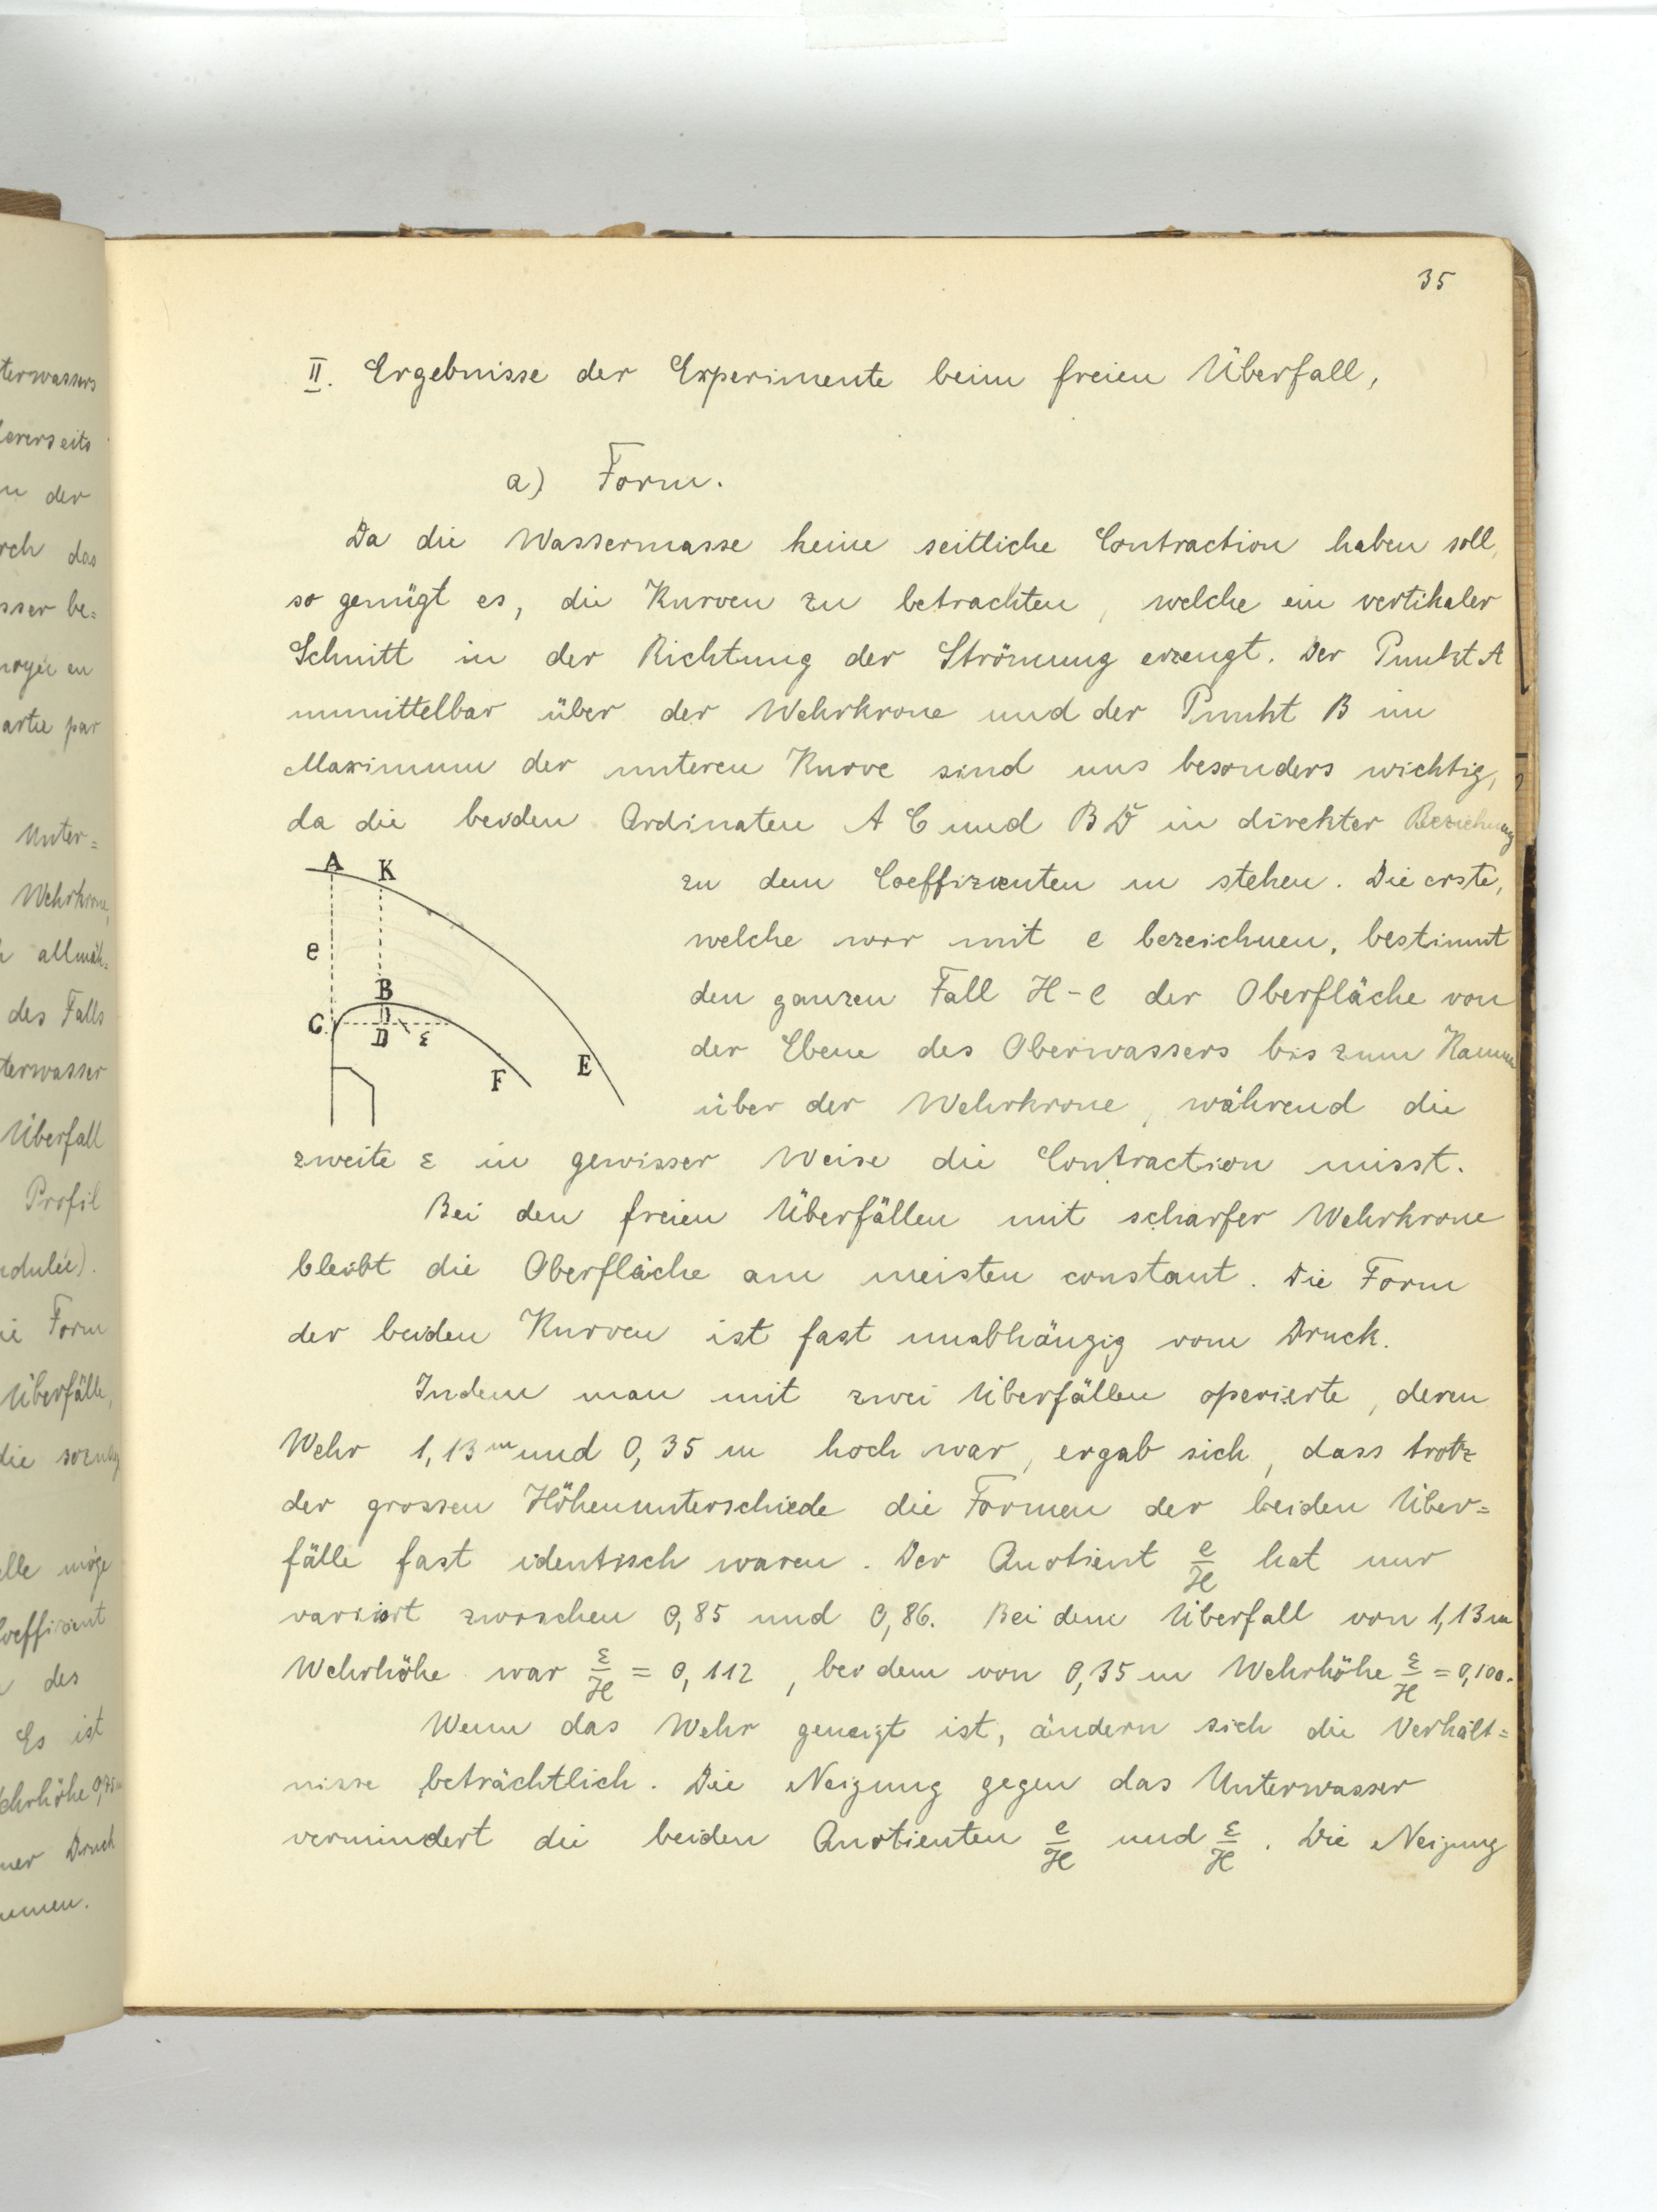 terwassers
ererseits
n der
rch das
sser be=
noyée en
artie par
Unter=
Wehrkrone,
h allmäh=
des Falls
terwasser
Überfall
Profil
ndulée).
ie Form
Überfälle,
die
elle möge
Coeffizient
des
Es ist
Wehrhöhe 0,75m
ner Druck
35
II. Ergebnisse der Experimente beim freien Überfall,
a) Form.
Da die Wassermasse keine seitliche Contraction haben soll,
so genügt es, die Kurven zu betrachten, welche ein vertikaler
Schnitt in der Richtung der Strömung erzeugt. Der Punkt A
unmittelbar über der Wehrkrone und der Punkt B im
Maximum der unteren Kurve sind uns besonders wichtig,
da die beiden Ordinaten A C und B D in direkter Beziehung
zu dem Coeffizienten m stehen. Die erste,
welche wir mit e bezeichnen, bestimmt
den ganzen Fall H - e der Oberfläche von
der Ebene des Oberwassers bis zum Kamm
über der Wehrkrone, während die
A K
e
B
C D ε
F E
zweite ε in gewisser Weise die Contraction misst.
Bei den freien Überfällen mit scharfer Wehrkrone
bleibt die Oberfläche am meisten constant. Die Form
der beiden Kurven ist fast unabhängig vom Druck.
Indem man mit zwei Überfällen operierte, deren
Wehr 1,13 m und 0,35 m hoch war, ergab sich, dass trotz
der grossen Höhenunterschiede die Formen der beiden Über=
fälle fast identisch waren. Der Quotient e/H hat nur
variiert zwischen 0,85 und 0,86. Bei dem Überfall von 1,13 m
Wehrhöhe war ε/H = 0,112, bei dem von 0,35 m Wehrhöhe ε/H = 0,100.
Wenn das Wehr geneigt ist, ändern sich die Verhält=
nisse beträchtlich. Die Neigung gegen das Unterwasser
vermindert die beiden Quotienten e/H und ε/H. Die Neigung